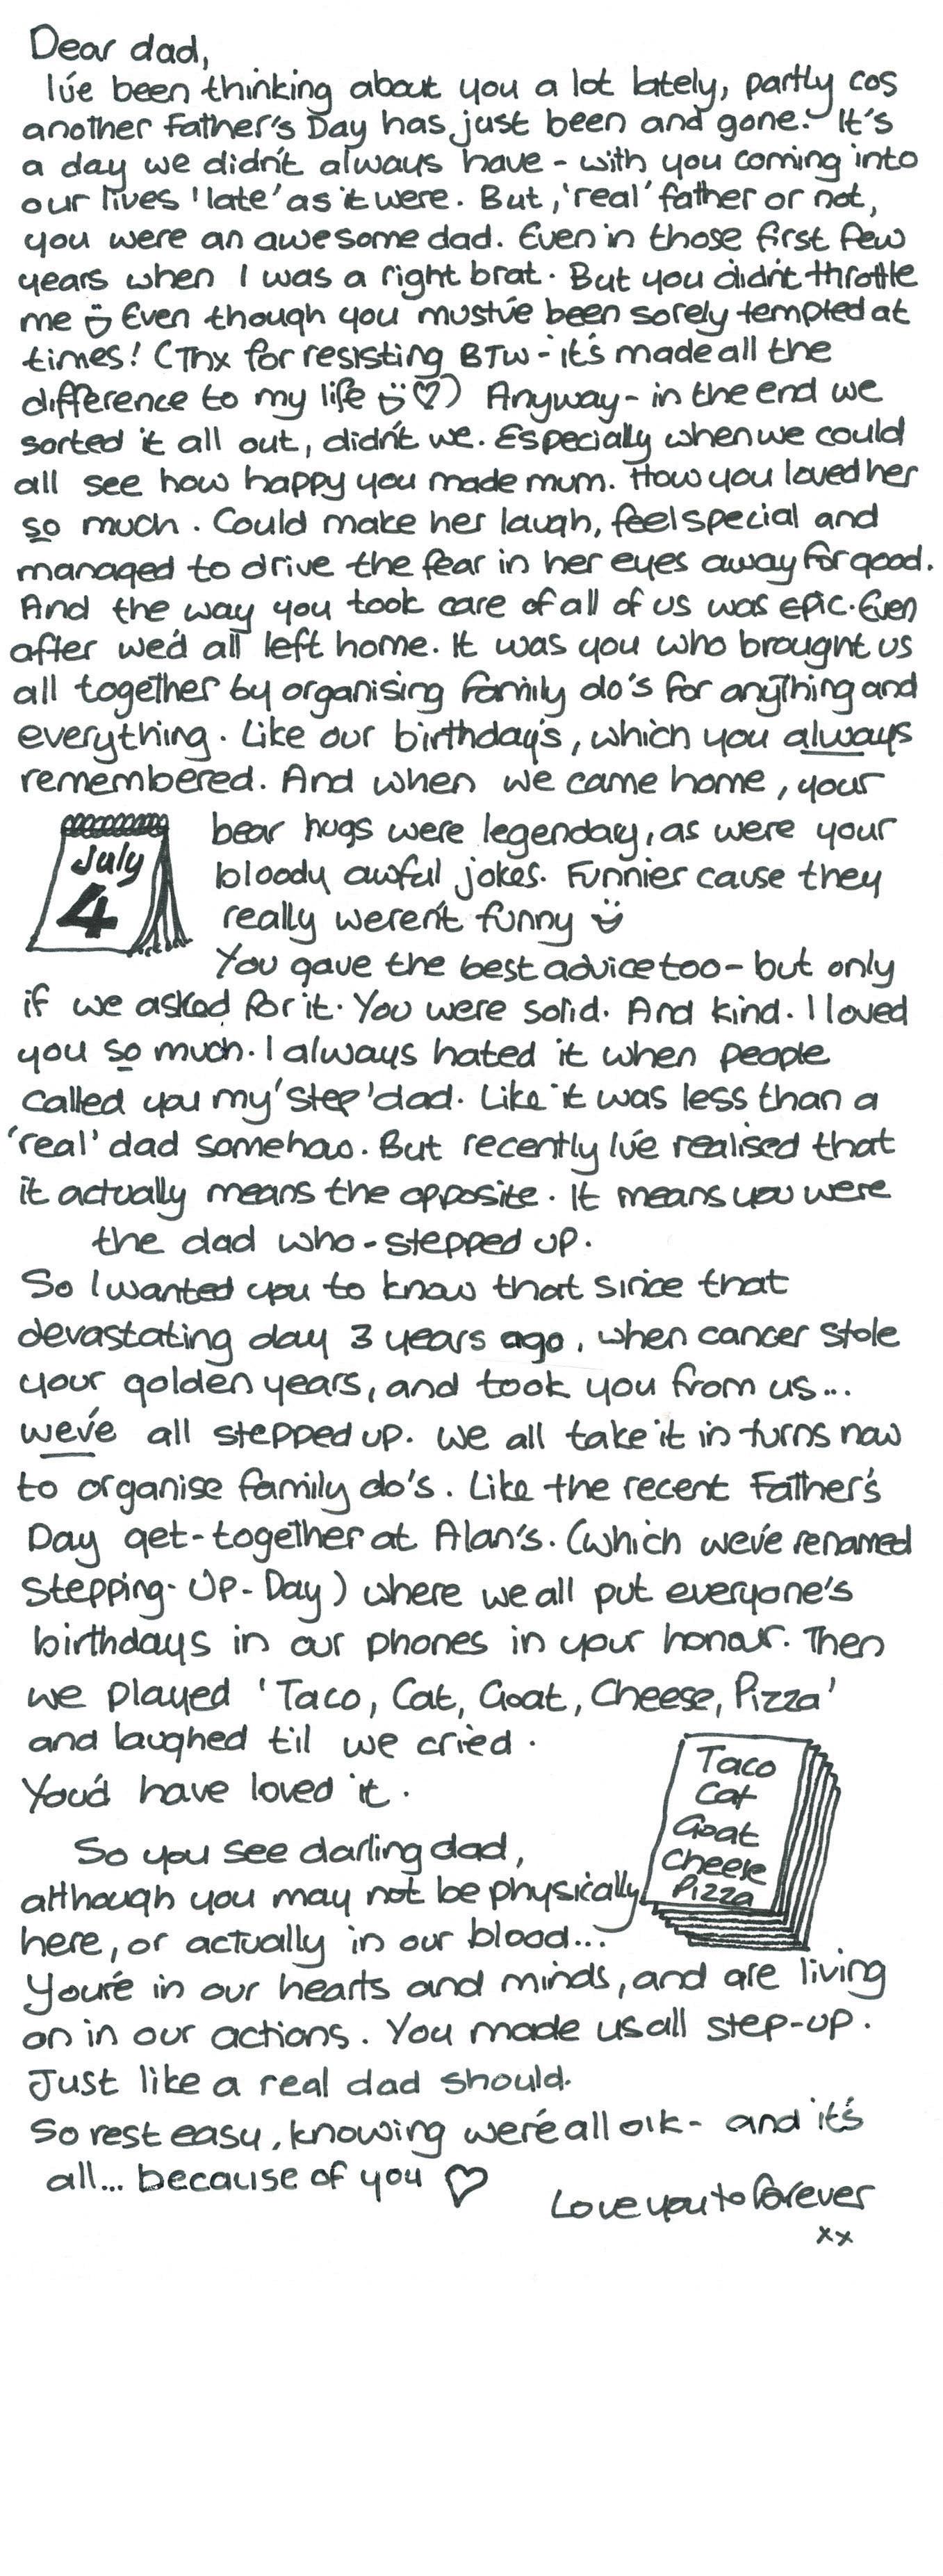 Dear dad,
I've been thinking about you a lot lately, partly cos
another Father's Day has just been and gone. It's
a day we didn't always have - with you coming into
our lives 'late' as it were. But, 'real' father or not,
you were an awesome dad. Even in those first few
years when I was a right brat. But you didn't throttle
me Even though you must've been sorely tempted at
times! (Thx for resisting BTW - it's made all the
difference to my life ♡) Anyway - in the end we
sorted it all out, didn't we. Especially when we could
all see how happy you made mum. How you loved her
so much. Could make her laugh, feel special and
managed to drive the fear in her eyes away for good.
And the way you took care of all of us was epic. Even
after we'd all left home. It was you who brought us
all together by organising family do's for anything and
everything. Like our birthday's, which you always
remembered. And when we came home, your
bear hugs were legenday, as were your
bloody awful jokes. Funnier cause they
really weren't funny
July
4
You gave the best advice too - but only
if we asked for it. You were solid. And kind. I loved
you so much. I always hated it when people
called you my 'step' dad. Like it was less than a
'real' dad somehow. But recently I've realised that
it actually means the opposite. It means you were
the dad who - stepped up.
So I wanted you to know that since that
devastating day 3 years ago, when cancer stole
your golden years, and took you from us...
we've all stepped up. We all take it in turns now
to organise family do's. Like the recent Father's
Day get-together at Alan's. (which we've renamed
Stepping-Up-Day) where we all put everyone's
birthdays in our phones in your honour. Then
we played 'Taco, Cat, Goat, Cheese, Pizza'
and laughed til we cried.
You'd have loved it.
Taco
Cat
Goat
Cheese
Pizza
So you see darling dad,
although you may not be physically
here, or actually in our blood...
You're in our hearts and minds, and are living
on in our actions. You made us all step-up.
Just like a real dad should.
So rest easy, knowing we're all ok - and it's
all... because of you ♡
Love you to forever
xx